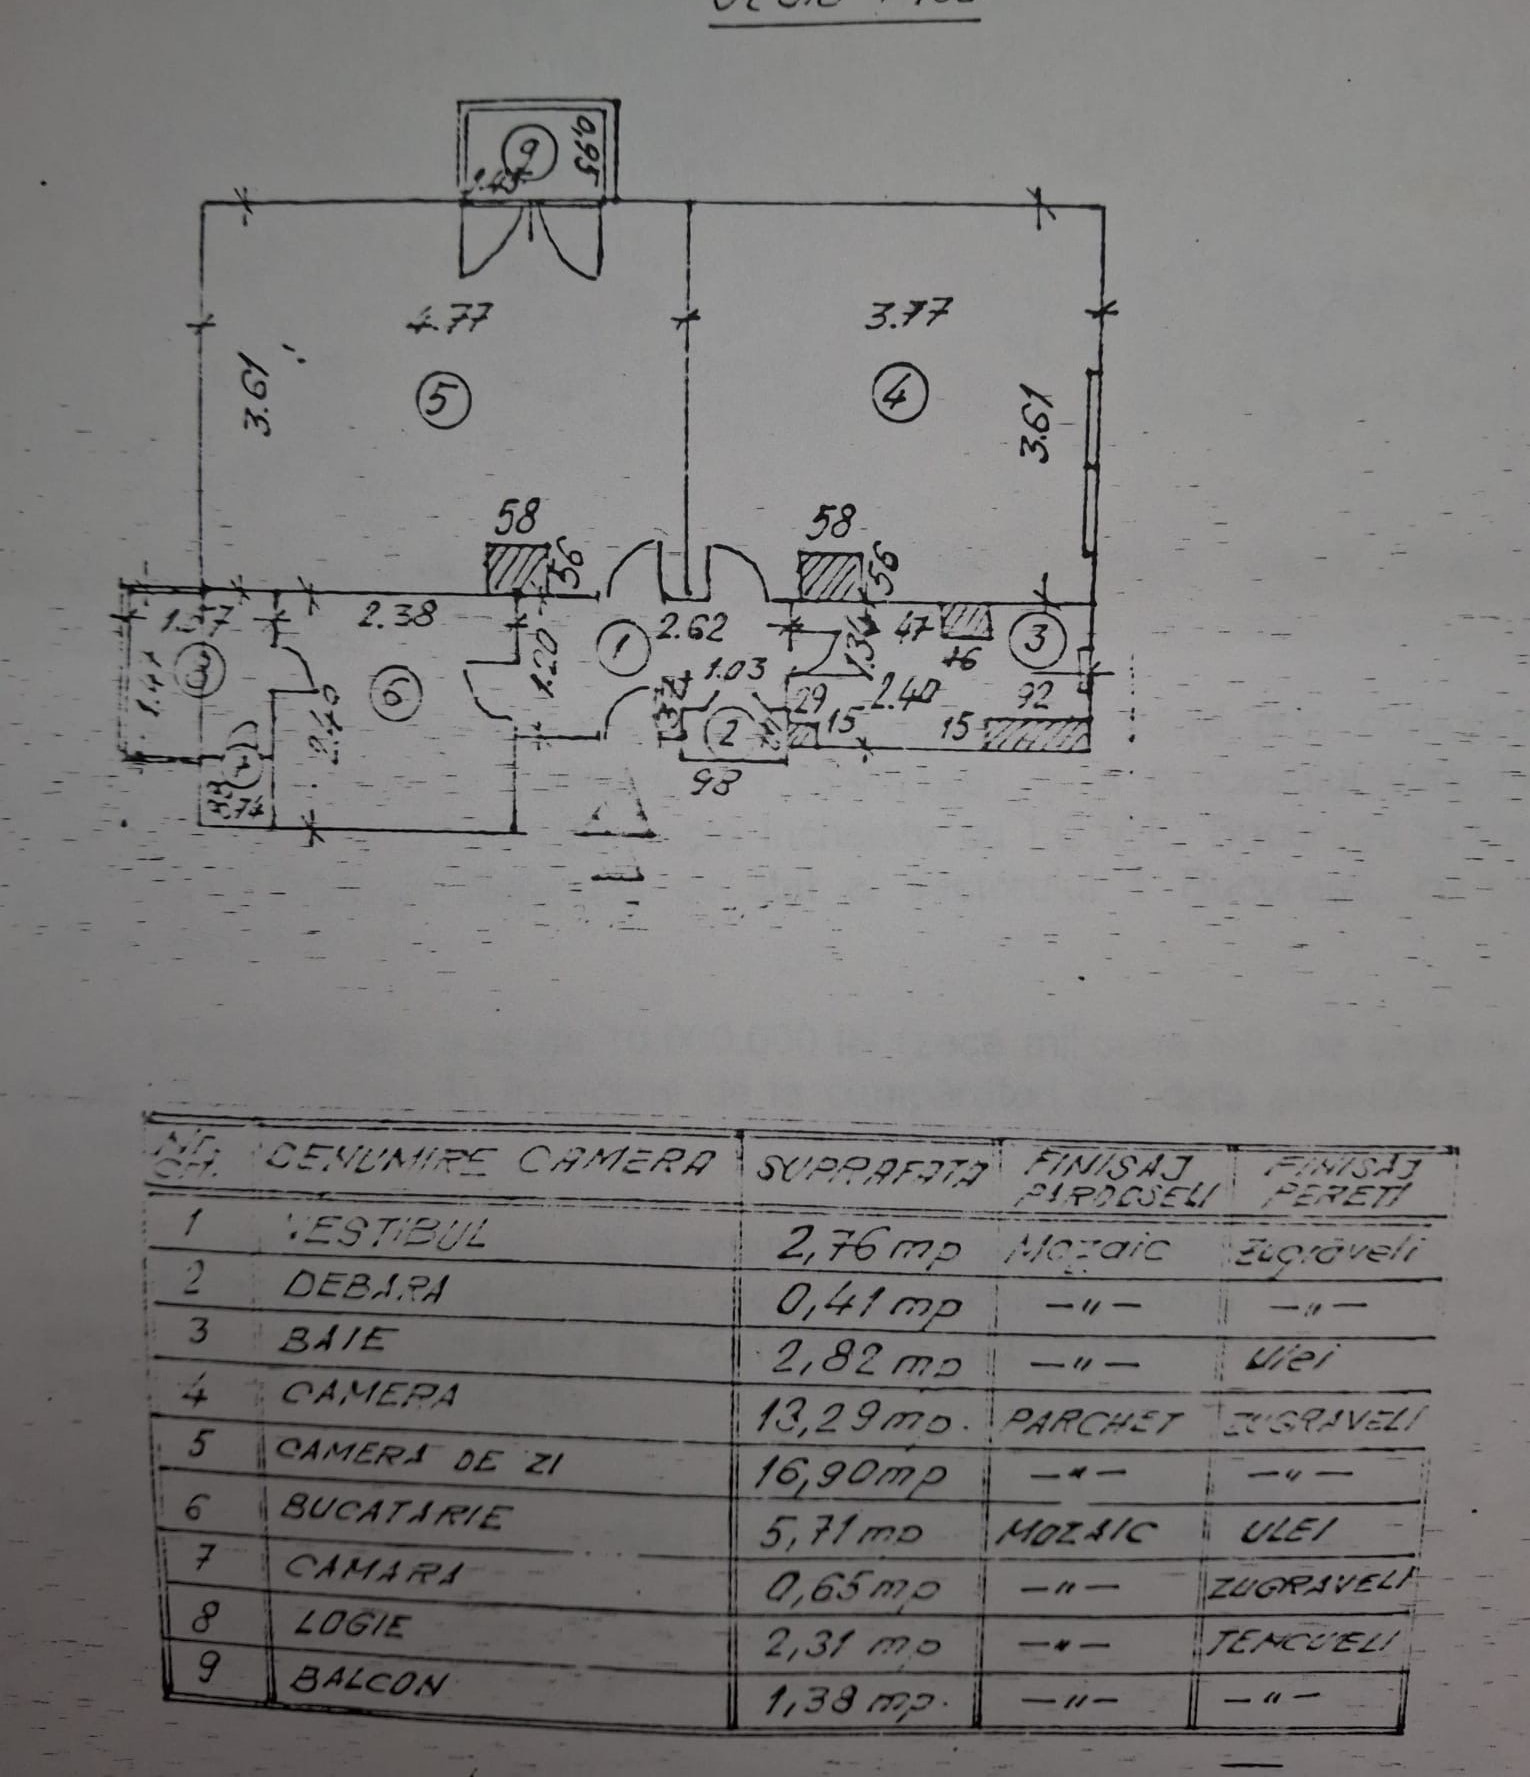 9
0,95
4.77
3.77
5
4
3.61
3.61
58
56
58
56
1.57
2.38
1
2.62
47
3
1.20
1.03
6
2.40
29
2.40
92
2
15
15
7
98
74
NR. CM. DENUMIRE CAMERA SUPRAFATA FINISAJ PARDOSELI FINISAJ PERETI
1 VESTIBUL 2,76 mp Mozaic Zugraveli
2 DEBARA 0,41 mp —"— —"—
3 BAIE 2,82 mp —"— Ulei
4 CAMERA 13,29 mp. PARCHET ZUGRAVELI
5 CAMERA DE ZI 16,90 mp —"— —"—
6 BUCATARIE 5,71 mp MOZAIC ULEI
7 CAMARA 0,65 mp —"— ZUGRAVELI
8 LOGIE 2,31 mp —"— TENCUELI
9 BALCON 1,38 mp. —"— —"—